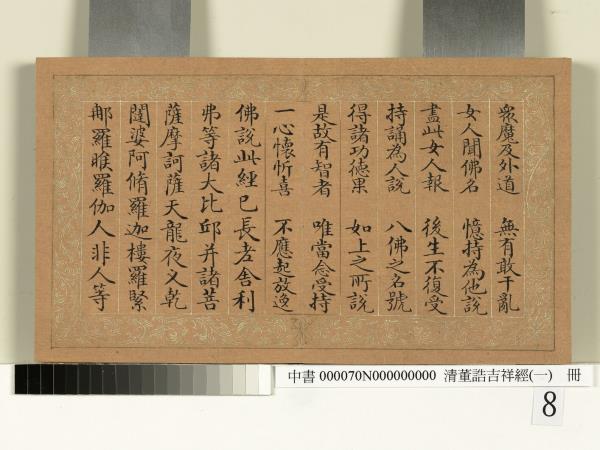 衆魔及外道　無有敢干亂
女人聞佛名　憶持為他說
盡此女人報　後生不復受
持誦為人說　八佛之名號
得諸功徳果　如上之所說
是故有智者　唯當念受持
一心懷忻喜　不應起放逸
佛說此經已長老舍利
弗等諸大比邱并諸菩
薩摩訶薩天龍夜义乾
闥婆阿脩羅迦樓羅緊
那羅睺羅伽人非人等
中書 000070N000000000 清董誥吉祥經(一) 冊
8